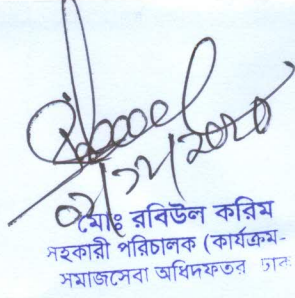 মোঃ রবিউল করিম
সহকারী পরিচালক (কার্যক্রম-
সমাজসেবা অধিদফতর ঢাকা